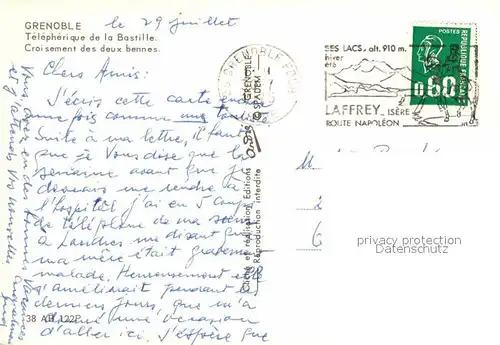 GRENOBLE
Téléphérique de la Bastille.
Croisement des deux bennes.
le 29 juillet
Chers Amis:
J'écris cette carte
une fois comme une
Suite à ma lettre, il faut
que je Vous dise que la
semaine avant que je
devais me rendre à
l'hopital j'ai eu 5 coups
de téléphone de ma sœur
à Londres me disant que
ma mère était gravement
malade. Heureusement elle
s'améliorait pendant les
derniers jours, que m'a
donné une occasion
d'aller ici. J'espère que
Vous avez eu des bonnes Vacances
et j'attends Vos nouvelles à
38 AB 122P
Cliché et réalisation Editions
Reproduction interdite
GRENOBLE
SPADEM
GRENOBLE
SES LACS, alt. 910 m.
hiver
été
LAFFREY ISÈRE
ROUTE NAPOLÉON
POSTES
0,60
REPUBLIQUE FRANÇAISE
privacy protection
Datenschutz